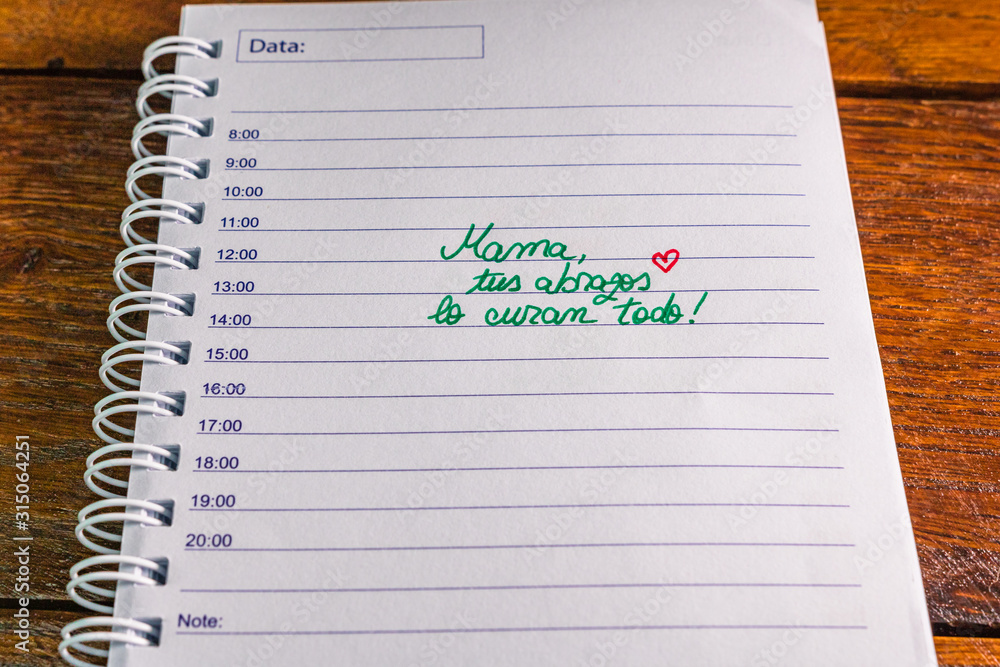 Data:
8:00
9:00
10:00
11:00
12:00
13:00
14:00
15:00
16:00
17:00
18:00
19:00
20:00
Note:
Mama,
tus abrazos
lo curan todo!
Adobe Stock | #315064251